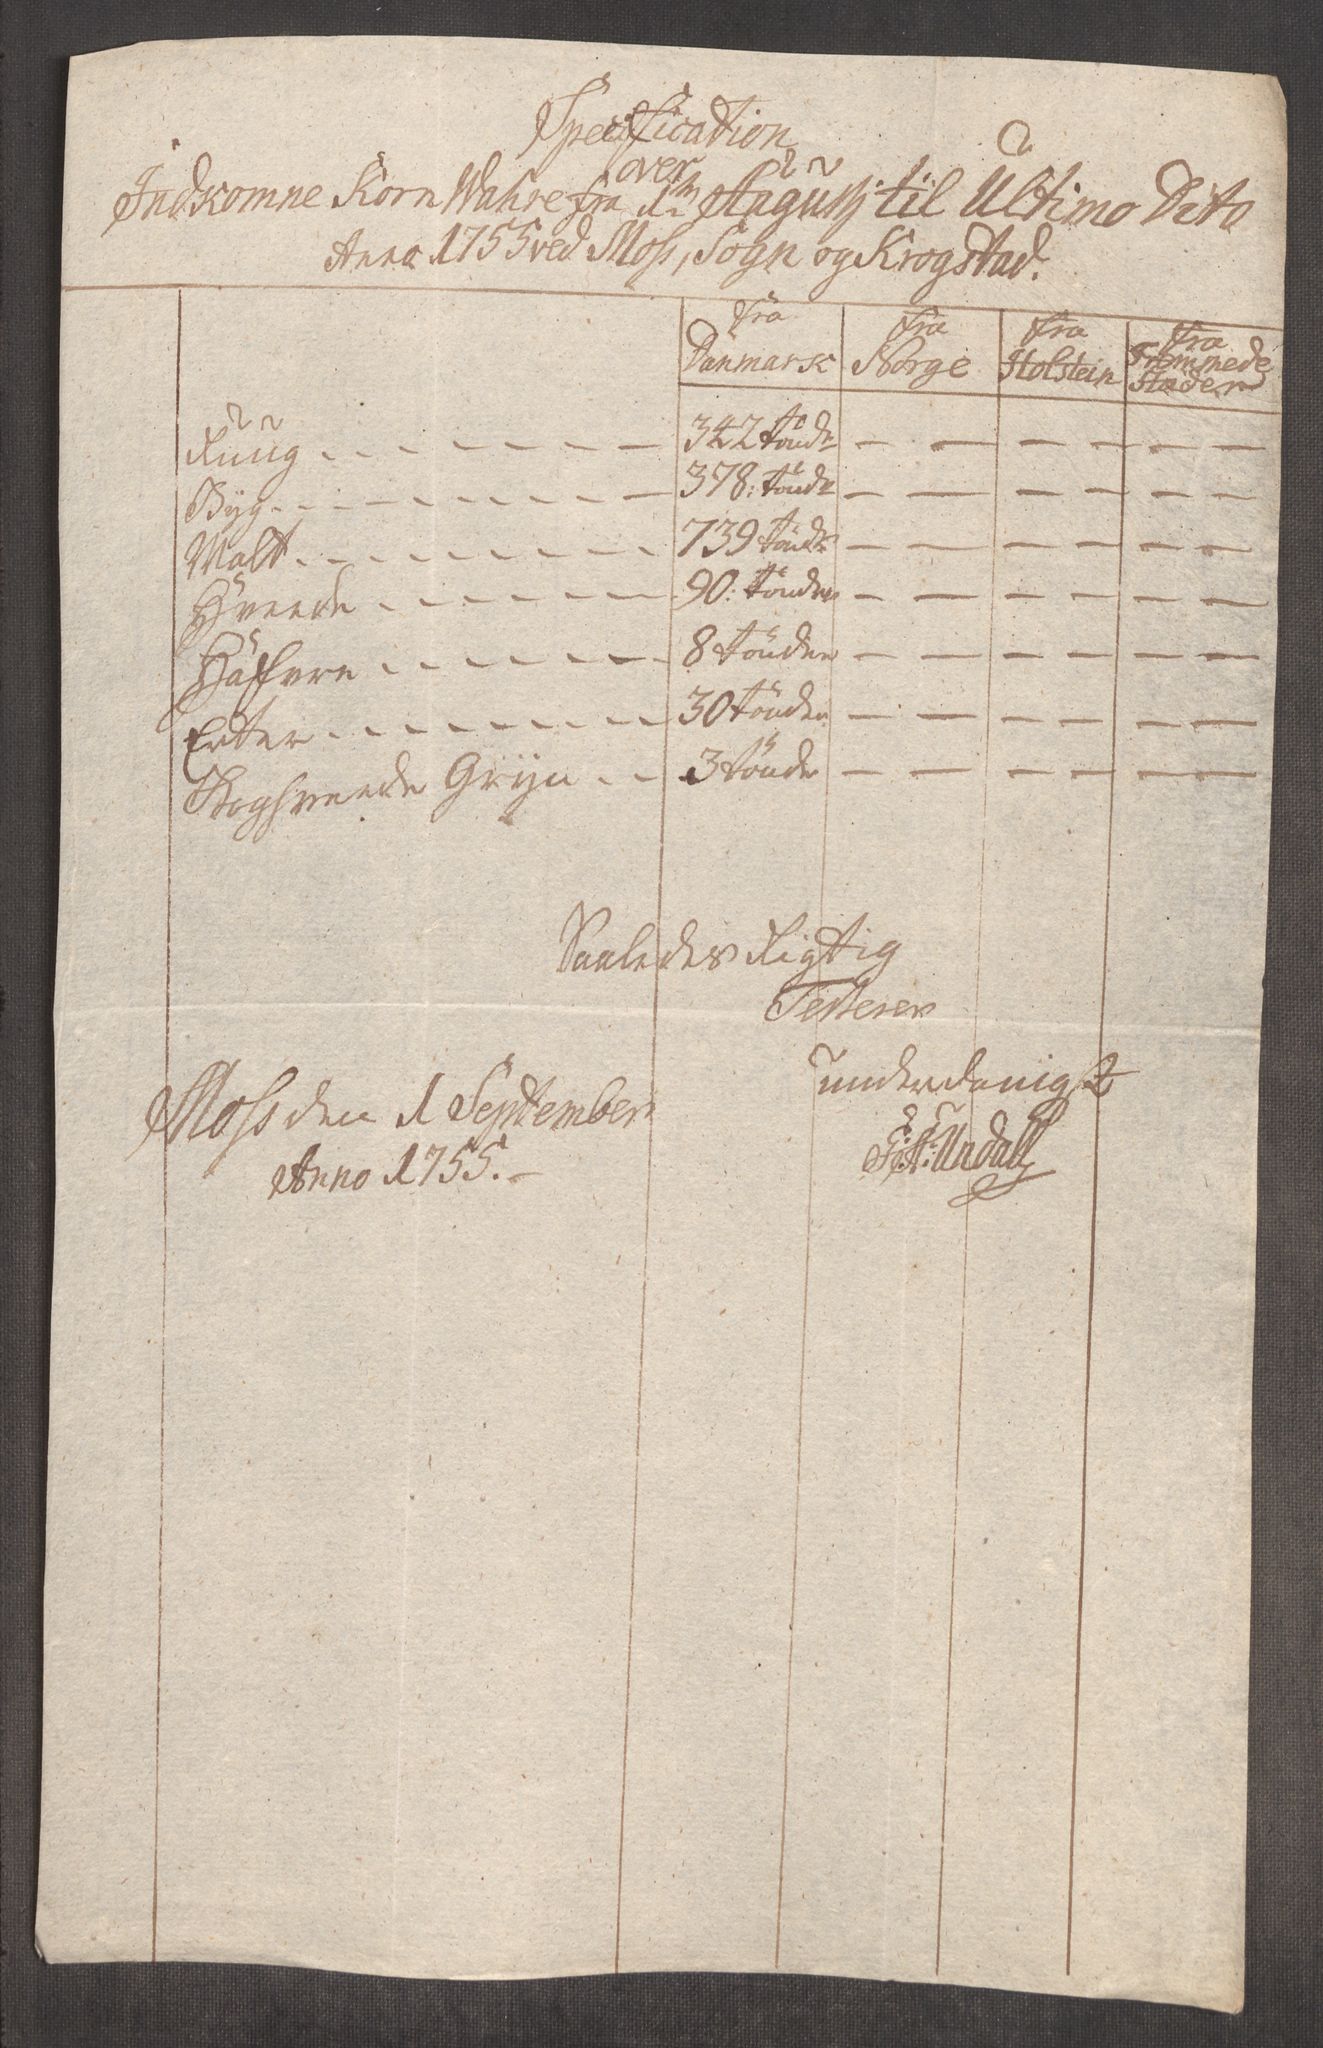 Specification
over
Indkomne Korn Wahre fra 1ten Augusti til Ultimo Dito
Anno 1755 ved Moss, Sogn og Krogstad.
fra Danmark | fra Norge | fra Holstein | fra Fremmede Stæder
Rúúg - - - - - - 342 Tönde - - - - - -
Byg - - - - - - 378: Tönde - - - - - -
Malt - - - - - - 739 Tönde - - - - - -
Hveede - - - - - 90: Tönder - - - - - -
Haffvre - - - - - 8 Tönder - - - - - -
Erter - - - - - - 30 Tönder - - - - - -
Boghveede Gryn - - 3 Tönde - - - - - -
Saaledes Rigtig
Testerer
Moss den 1 September
Anno 1755. -
underdanigst
Undall